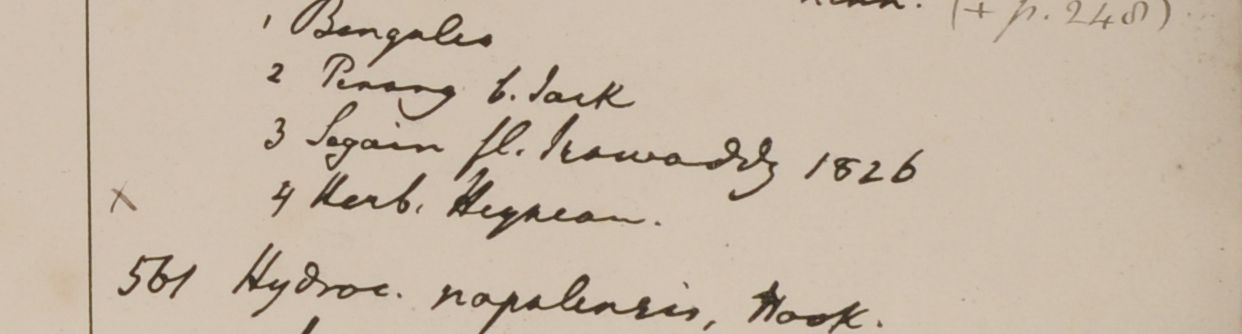 (+ p. 248)
1 Bengalia
2 Penang G. Jack
3 Segain fl. Irawaddy 1826
x 4 Herb. Heynean.
561 Hydroc. napalensis, Hook.